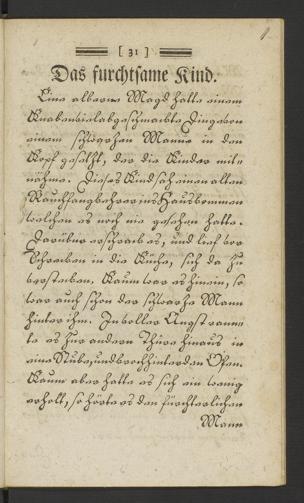 [ 31 ]
Das furchtsame Kind.
Eine alberne Magd hatte einem
Knaben viel abgeschmackte Dinge von
einem schwarzen Manne in den
Kopf gesetzt, der die Kinder mit-
nähme. Dieses Kind sah einen alten
Rauchfangkehrer ins Haus kommen
welchen es noch nie gesehen hatte.
Darüber erschrack es, und lief vor
Schrecken in die Küche, sich da zu
verstecken. Kaum war es hinein, so
war auch schon der schwarze Mann
hinter ihm. In voller Angst rann-
te es zur andern Thüre hinaus in
eine Stube, und kroch hinter den Ofen.
Kaum aber hatte es sich ein wenig
erholt, so hörte es den fürchterlichen
Mann